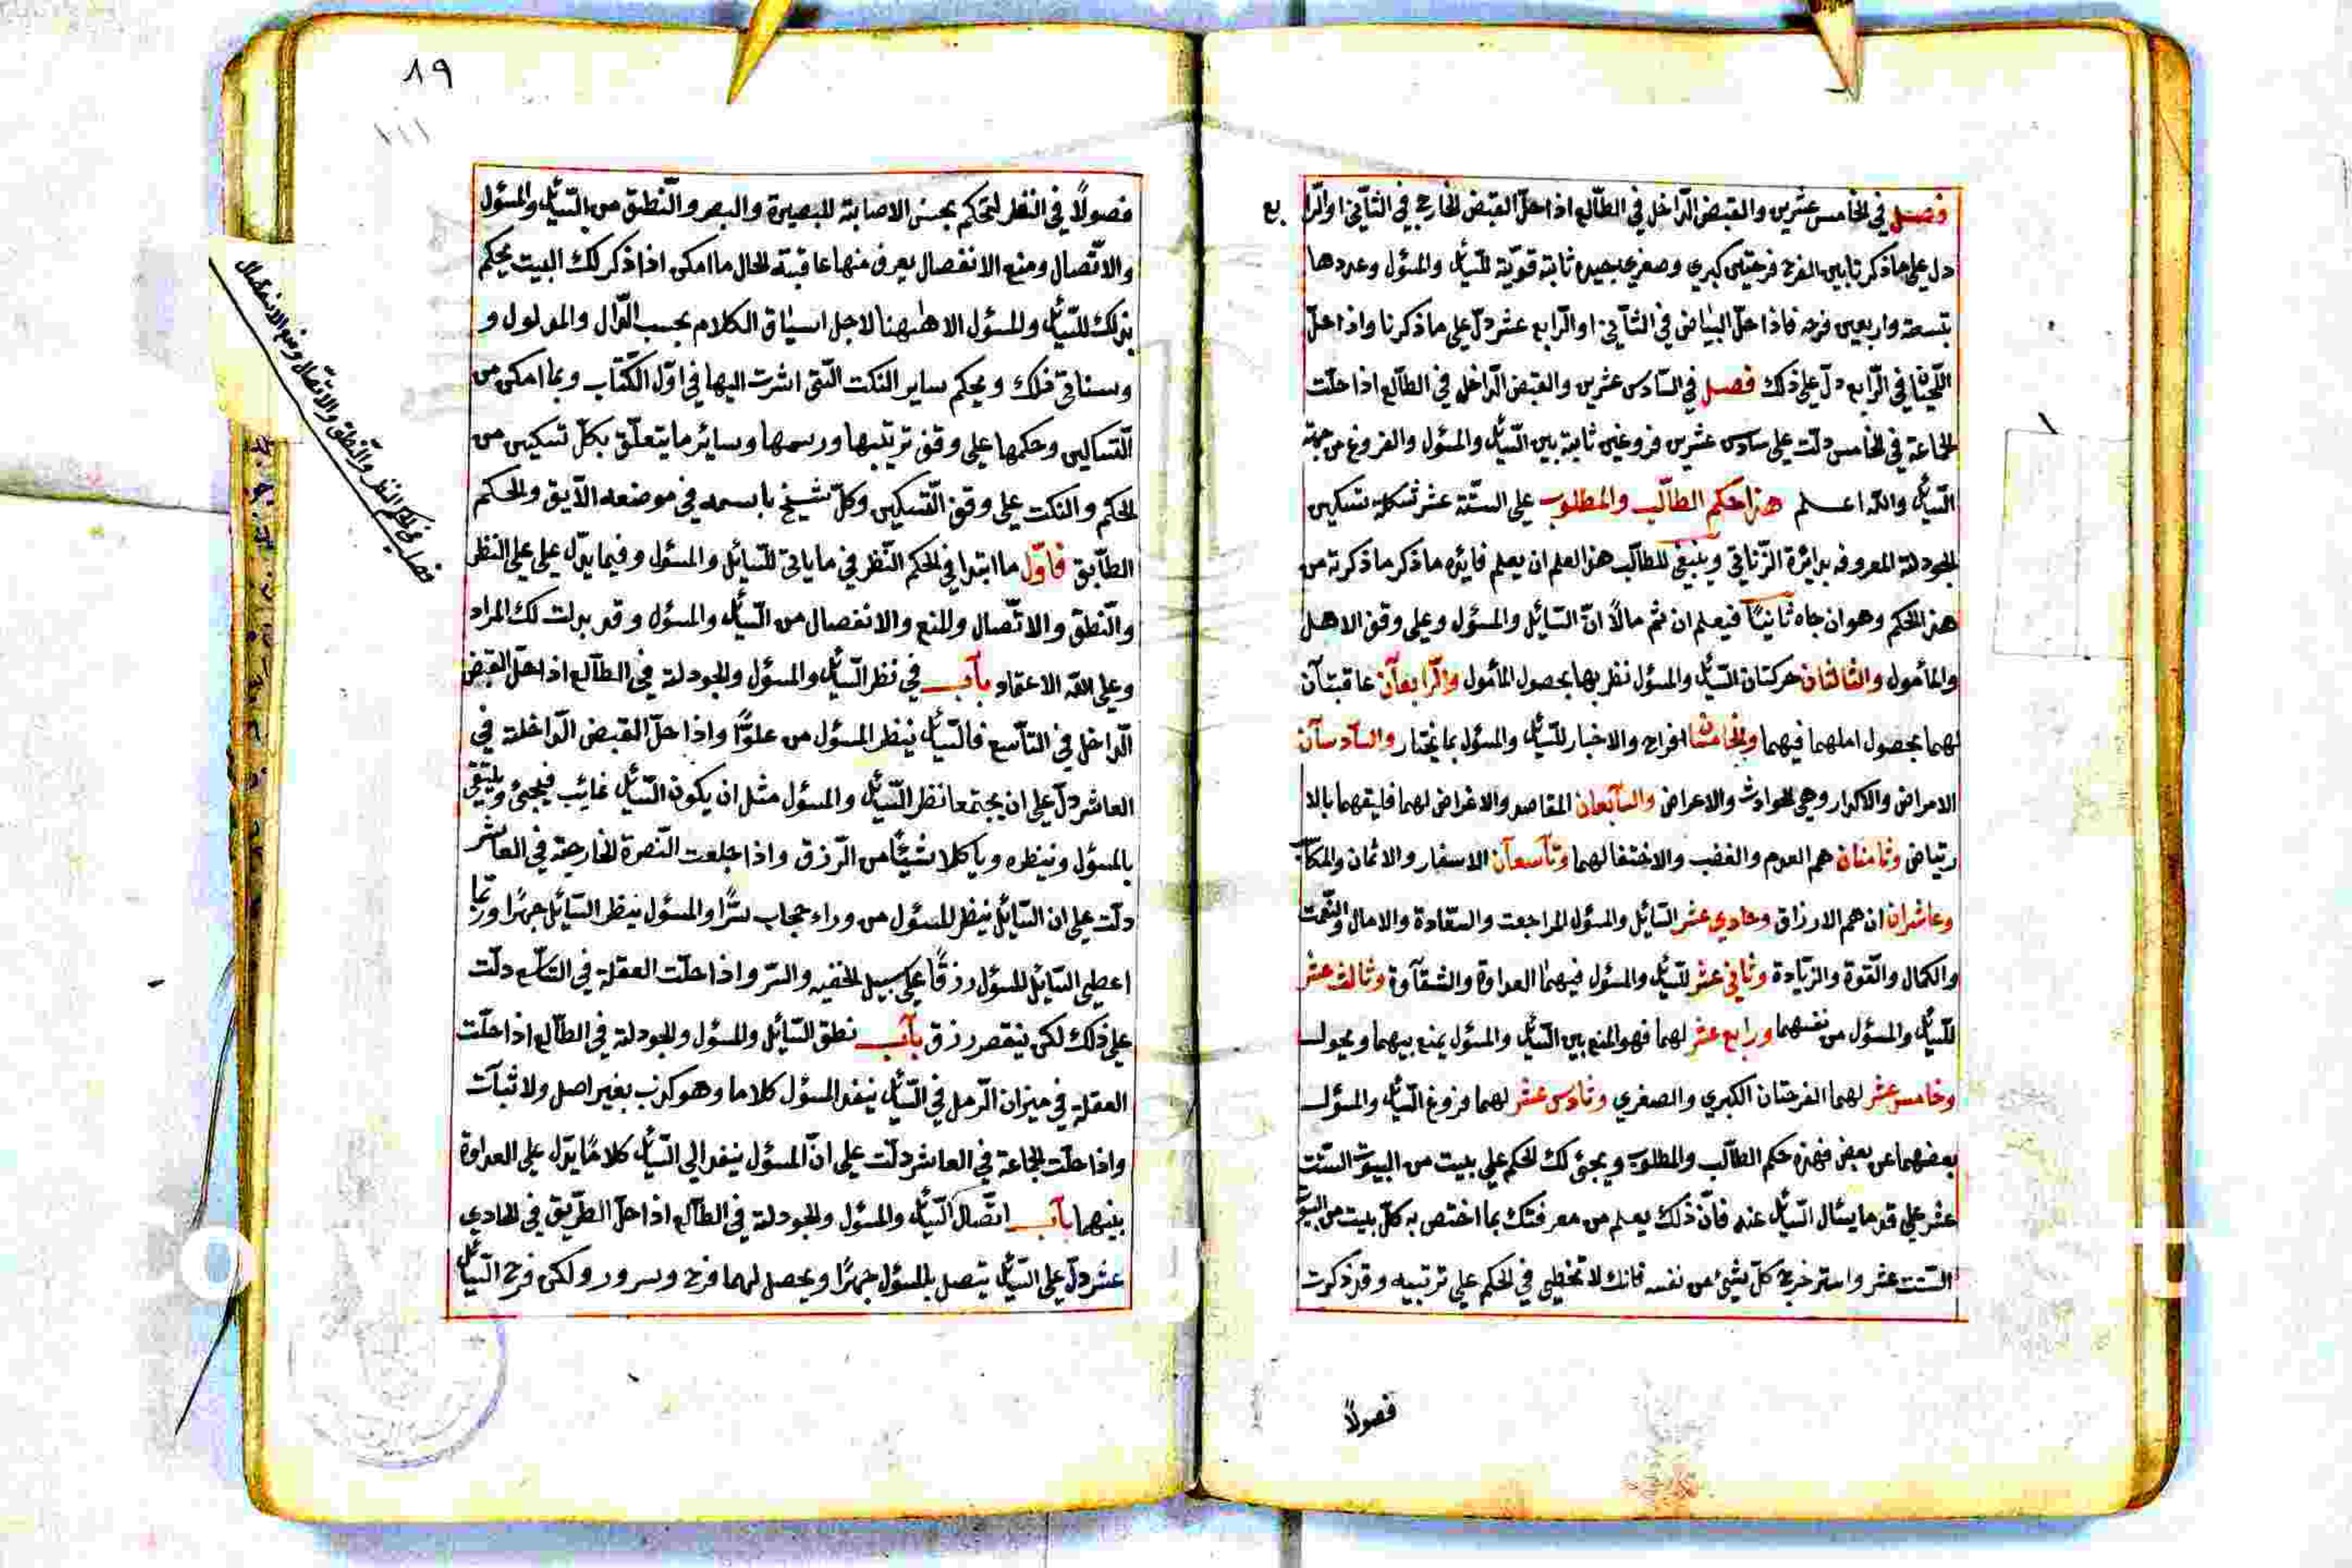 فصل في الخامس عشرين والقبض الداخل في الطالع اذا حل القبض الخارج في الثاني او الرا
بع
دل على ما ذكرنا بين الفرح فرحتين كبري وصغري جيده ثابتة قوية للسائل والمسئول وعددها
تسعة واربعين فرحه فاذا حل البياض في الثاني او الرابع عشر دل على ما ذكرنا واذا حل
اللحيان في الرابع دل على ذلك فصل في السادس عشرين والقبض الداخل في الطالع اذا حلت
الجماعة في الخامس دلت على سادس عشرين فروغين ثابتة بين السائل والمسئول والفروغ من جهة
السائل والله اعلم هذا حكم الطالب والمطلوب على الستة عشر شكلا تسكين
الجودلة المعروفه بدائرة الزناتي وينبغي للطالب هذا العلم ان يعلم فائده ما ذكر ما ذكرته من
هذا الحكم وهو ان جاه ثانيا فيعلم ان ثم مالا ان السائل والمسئول وعلى وفق الاهل
والمأمول والثالثان حركتان السائل والمسئول نظر بها بحصول المأمول والرابعان عاقبتان
لهما بحصول املهما فيهما والخامسان افراح والاخبار للسائل والمسئول بما يختار والسادسان
الامراض والاكدار وهي الحوادث والاعراض والسابعان المقاصد والاغراض لهما فليقهما بالا
رتياض وثامنان هم العدم والغضب والاختفا لهما وتاسعان الاسفار والاثمان
وعاشران ان هم الارزاق وحادي عشر السائل والمسئول المراجعت والسعادة والامال
والكمال والقوة والزيادة وثاني عشر للسائل والمسئول فيهما العداوة والشقاوة وثالث عشر
للسائل والمسئول من نفسهما ورابع عشر لهما فهو المنع بين السائل والمسئول يمنع بيهما ويحول
وخامس عشر لهما الفرحتان الكبري والصغري وسادس عشر لهما فروغ السائل والمسئول
بعضهما عن بعض فهذه حكم الطالب والمطلوب ويجئ لك الحكم على بيت من البيوت الستت
عشر على قدر ما يسئال السائل عنه فان ذلك يعلم من معرفتك بما اختص به كل بيت من البيوت
الستت عشر واستر خرج كل شيئ من نفسه فانك لا تخطي في الحكم على ترتيبه وقد ذكرت
فصولا
٨٩
فصولا في النظر لتحكم بحسن الاصابة للبصيرة والبصر والنطق من السائل والمسئول
والاتصال ومنع الانفصال يعرف منها عاقبة الحال ما امكن اذا ذكر لك البيت يحكم
بذلك للسائل والمسئول الا هيهنا لاجل اسياق الكلام بحسب الدال والمدلول و
وسناتي فلك ويحكم ساير النكت التي اشرت اليها في اول الكتاب وبما امكن من
التسالين وحكمها على وفق ترتيبها ورسمها وسائر ما يتعلق بكل تسكين من
الحكم والنكت على وفق التسكين وكل شيخ باسمه في موضعه الايق والحكم
الطابق فاول ما ابتدا في الحكم النظر في ما ياتي للسائل والمسئول وفيما يدل على على النظر
والنطق والاتصال والمنع والانفصال من السائل والمسئول وقد بدلت لك المراد
وعلى الله الاعتماد باب في نظر السائل والمسئول والجودلة في الطالع اذا حل القبض
الداخل في التاسع فالسائل ينظر المسئول من علوا واذا حل القبض الداخلة في
العاشر دل على ان يجتمعا نظر السائل والمسئول مثل ان يكون السائل غائب فيجئ ويلتقي
بالمسئول وينظره وياكلا شيئا من الرزق واذا طلعت النصرة الخارجة في العاشر
دلت على ان السائل ينظر للمسئول من وراء حجاب سترا والمسئول ينظر السائل جهرا وربما
اعطي السائل للمسئول رزقا على سبيل الخفيه والستر واذا حلت العقلة في التاسع دلت
على ذلك لكن ينقص رزق باب نطق السائل والمسئول والجودلة في الطالع اذا حلت
العقلة في ميزان الرمل في السائل ينفد المسئول كلاما وهو كذب بغير اصل ولا ثبات
واذا حلت الجماعة في العاشر دلت على ان المسئول ينفد الى السائل كلاما يدل على العداوة
بينهما باب اتصال السائل والمسئول والجودلة في الطالع اذا حل الطريق في الحادي
عشر دل على السائل يتصل بالمسئول جهرا ويحصل لهما فرح وسرور ولكن فرح السائل
فصل في حكم النظر والنطق والاتصال ومنع الانفصال